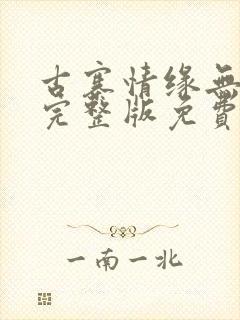 古寨情缘無
完整版免費
一南一北